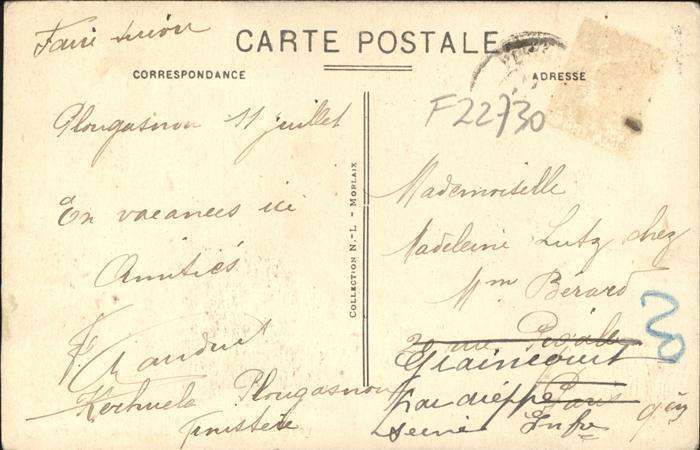 Faire suivre
CARTE POSTALE
CORRESPONDANCE
ADRESSE
F22730
Plougasnou 11 juillet
En vacances ici
Amitiés
Plougasnou
Finistère
COLLECTION N.-L - MORLAIX
Mademoiselle
Madeleine Lutz chez
Mm Bérard
20 rue Pigalle
Graincourt
par dieppe Paris
Seine Infre
20